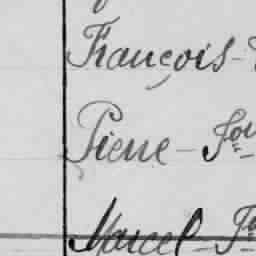 François -
Pierre - Jou
Marcel - J